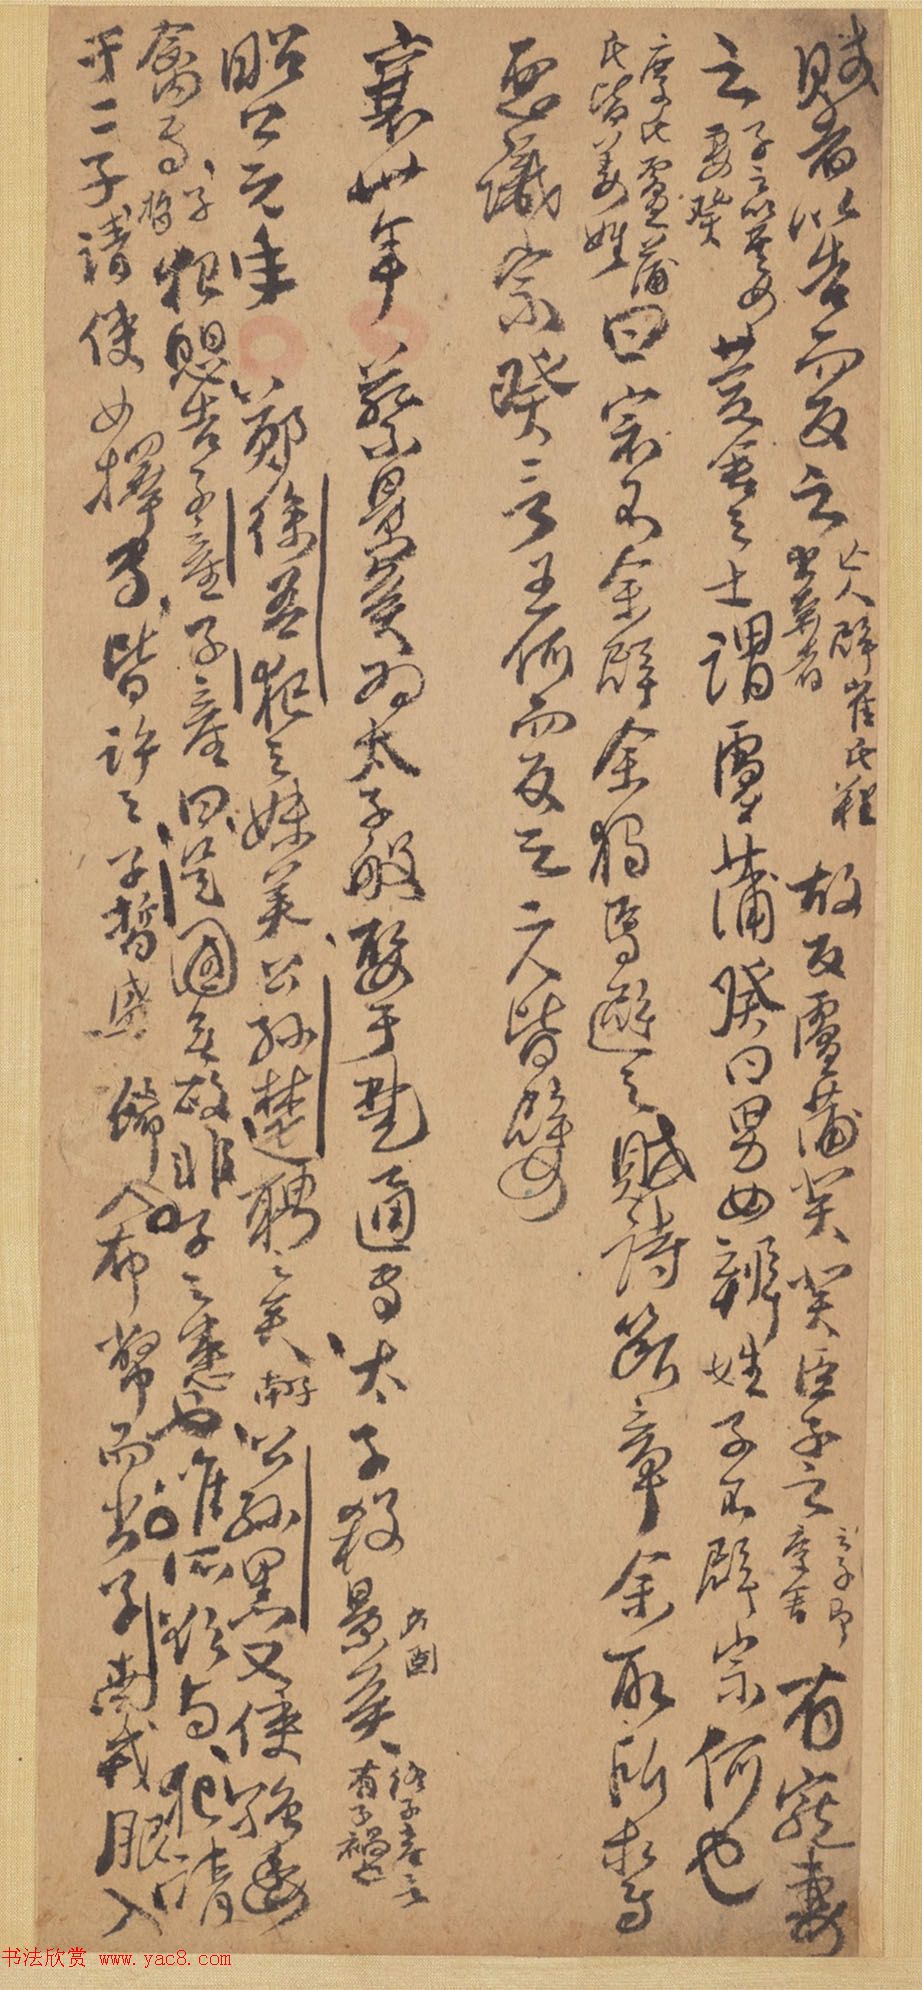 賊者以告而反之亡人辟崔氏難出奔者故反盧蒲癸癸臣子之子之即慶舍有寵妻
之子之以其女妻癸慶舍之士謂盧蒲癸曰男女辨姓子不辟宗何也
慶氏盧蒲氏皆姜姓曰宗不余辟余獨焉避之賦詩斷章余取所求焉
惡識宗癸言王何而反之二人皆嬖
襄卅年 蔡景侯為太子般娶于楚通焉太子殺景侯終子產言有子禍
昭公元年 鄭徐吾犯之妹美公孫楚聘之矣子南公孫黑又使強委
禽焉犯懼告子產子產曰是國無政非子之患也唯所欲與犯請
于二子請使女擇焉皆許之子皙盛飾入布幣而出子南戎服入
书法欣赏 www.yac8.com